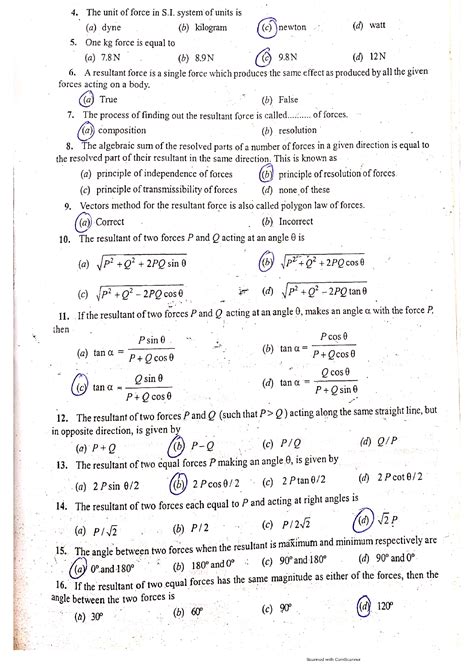 4. The unit of force in S.I. system of units is
(a) dyne (b) kilogram (c) newton (d) watt
5. One kg force is equal to
(a) 7.8 N (b) 8.9 N (c) 9.8 N (d) 12 N
6. A resultant force is a single force which produces the same effect as produced by all the given
forces acting on a body.
(a) True (b) False
7. The process of finding out the resultant force is called.......... of forces.
(a) composition (b) resolution
8. The algebraic sum of the resolved parts of a number of forces in a given direction is equal to
the resolved part of their resultant in the same direction. This is known as
(a) principle of independence of forces (b) principle of resolution of forces
(c) principle of transmissibility of forces (d) none of these
9. Vectors method for the resultant force is also called polygon law of forces.
(a) Correct (b) Incorrect
10. The resultant of two forces P and Q acting at an angle θ is
(a) √(P² + Q² + 2PQ sin θ) (b) √(P² + Q² + 2PQ cos θ)
(c) √(P² + Q² − 2PQ cos θ) (d) √(P² + Q² − 2PQ tan θ)
11. If the resultant of two forces P and Q acting at an angle θ, makes an angle α with the force P,
then
(a) tan α = P sin θ / P + Q cos θ (b) tan α = P cos θ / P + Q cos θ
(c) tan α = Q sin θ / P + Q cos θ (d) tan α = Q cos θ / P + Q sin θ
12. The resultant of two forces P and Q (such that P > Q) acting along the same straight line, but
in opposite direction, is given by
(a) P + Q (b) P − Q (c) P / Q (d) Q / P
13. The resultant of two equal forces P making an angle θ, is given by
(a) 2 P sin θ/2 (b) 2 P cos θ/2 (c) 2 P tan θ/2 (d) 2 P cot θ/2
14. The resultant of two forces each equal to P and acting at right angles is
(a) P/√2 (b) P/2 (c) P/2√2 (d) √2 P
15. The angle between two forces when the resultant is maximum and minimum respectively are
(a) 0° and 180° (b) 180° and 0° (c) 90° and 180° (d) 90° and 0°
16. If the resultant of two equal forces has the same magnitude as either of the forces, then the
angle between the two forces is
(a) 30° (b) 60° (c) 90° (d) 120°
Scanned with CamScanner